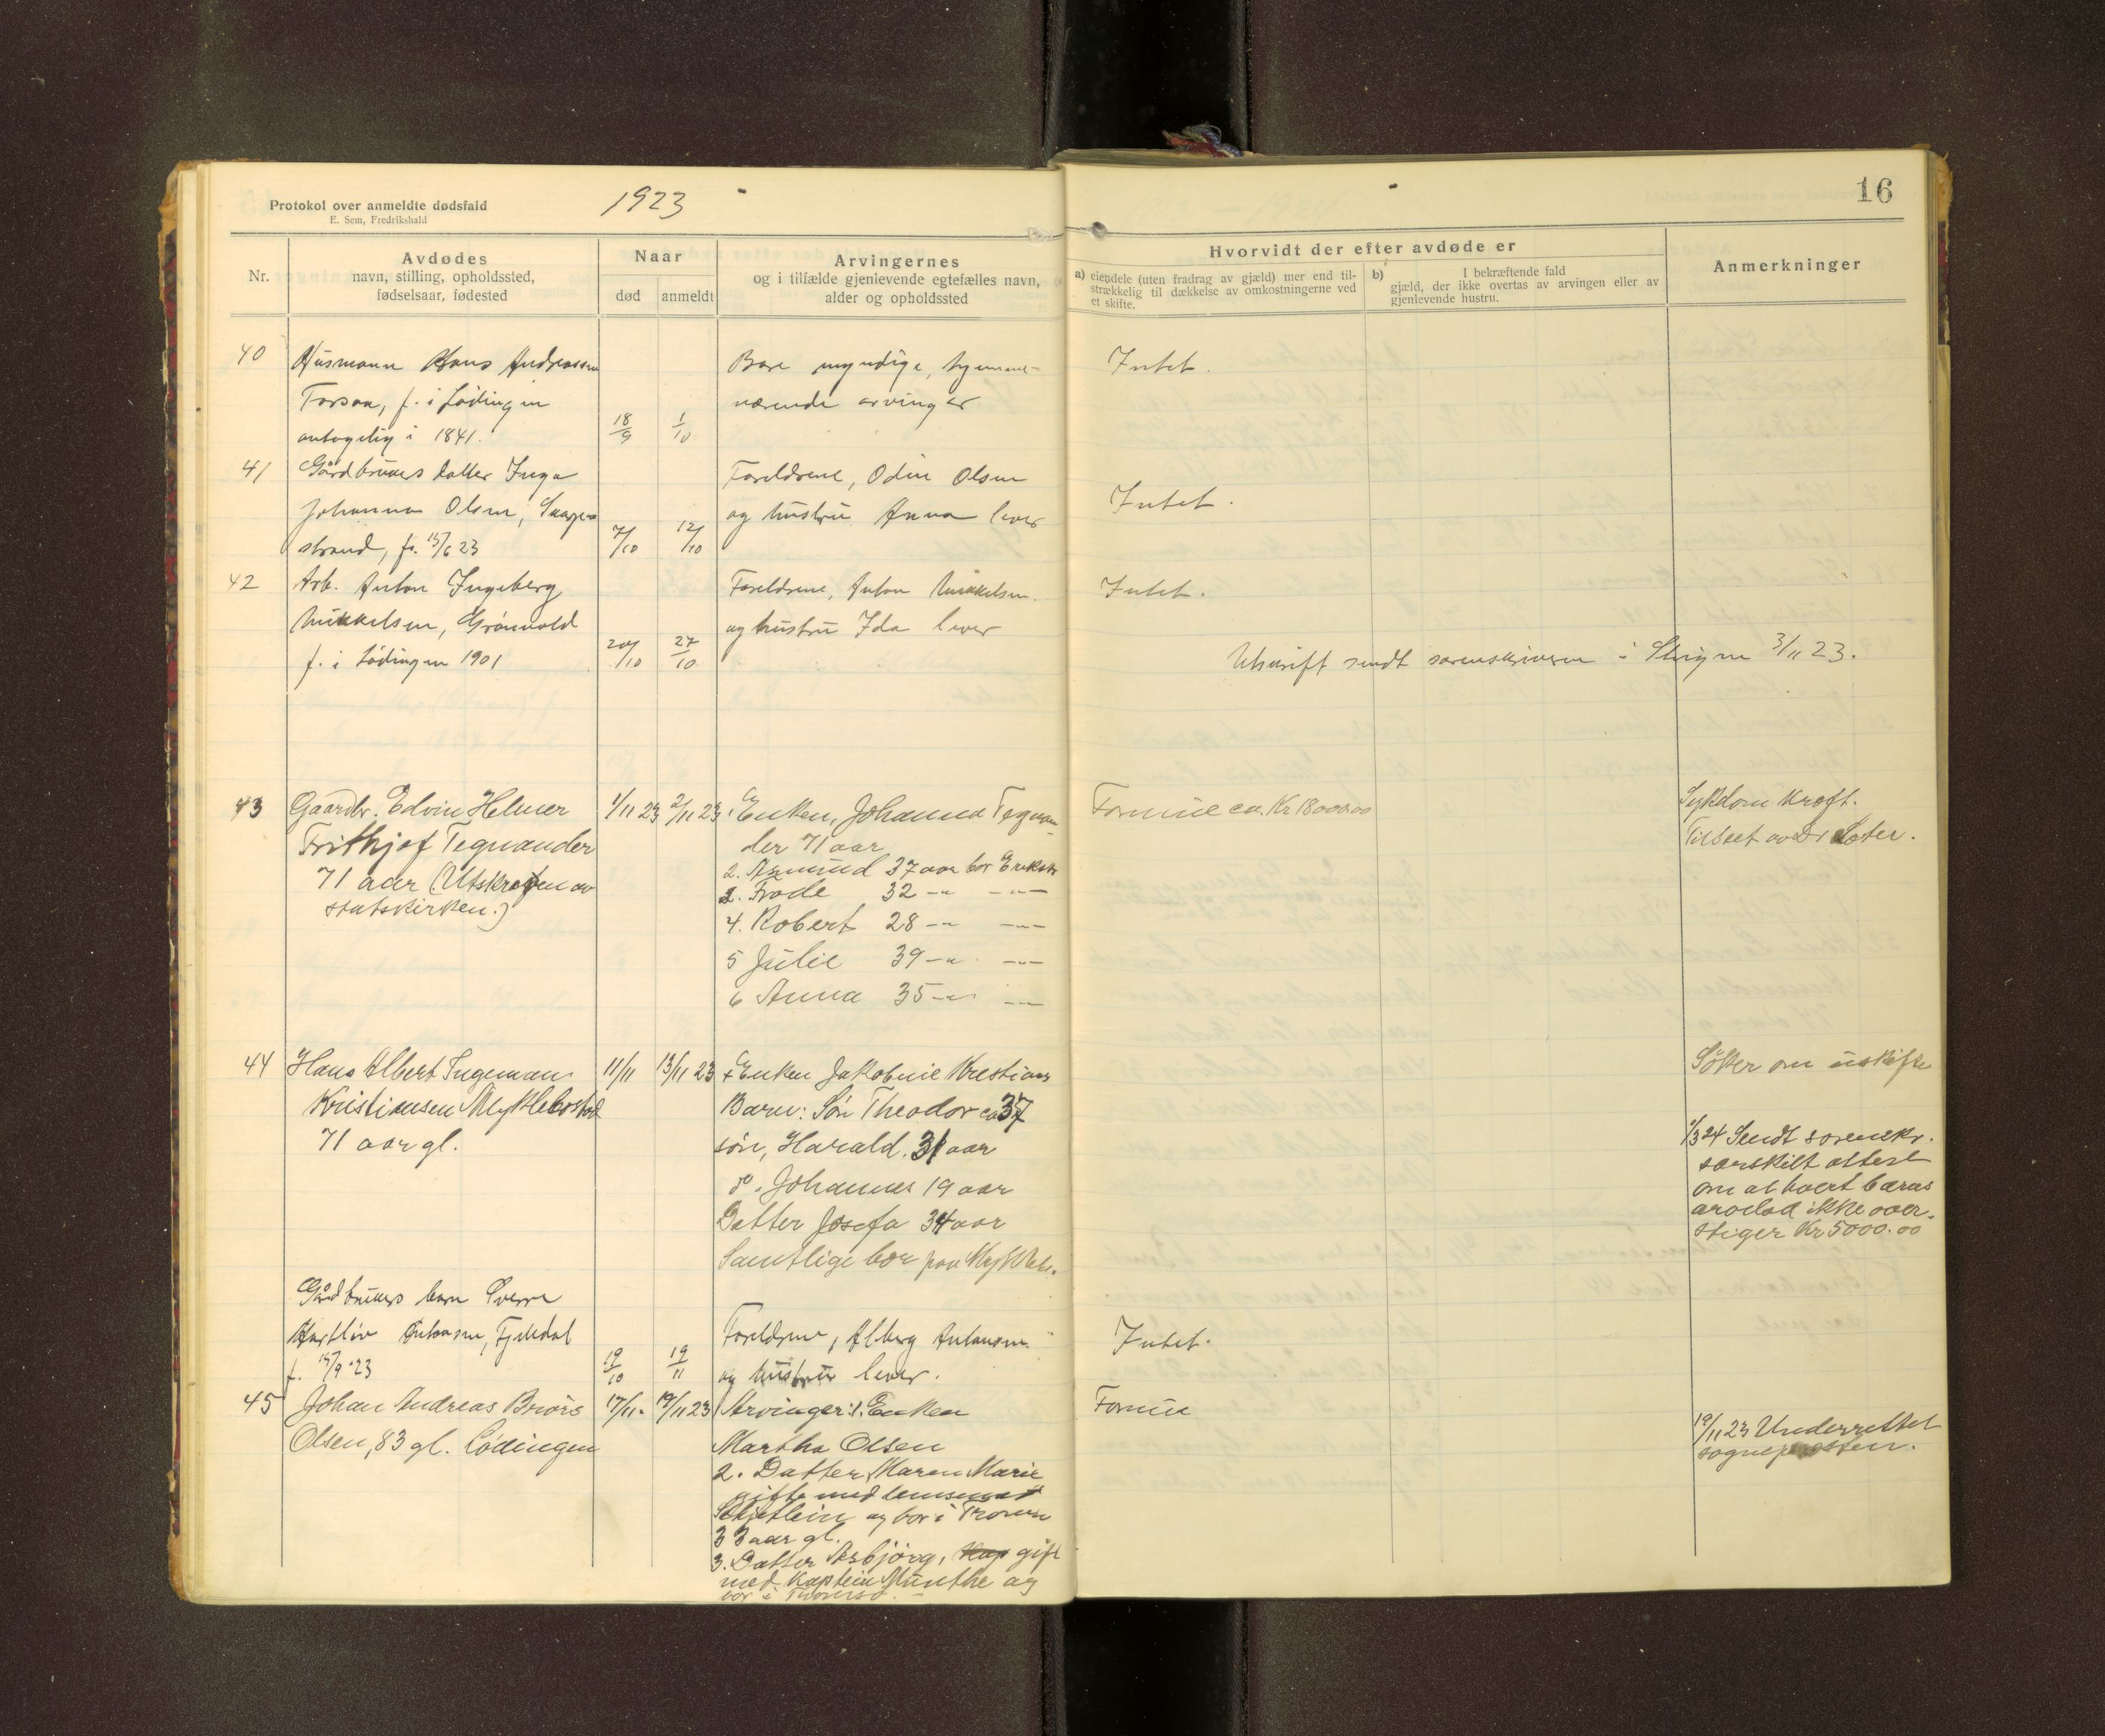 Protokol over anmeldte dødsfald
E. Sem, Fredrikshald
1923
16
Nr.
Avdødes
navn, stilling, opholdssted,
fødselsaar, fødested
Naar
død
anmeldt
Arvingernes
og i tilfælde gjenlevende egtefælles navn,
alder og opholdssted
Hvorvidt der efter avdøde er
a) eiendele (uten fradrag av gjæld) mer end til-
strækkelig til dækkelse av omkostningerne ved
et skifte.
b) I bekræftende fald
gjæld, der ikke overtas av arvingen eller av
gjenlevende hustru.
Anmerkninger
40
Husmann Hans Andreassen
f. i Lødingen
antagelig i 1841.
18/9
1/10
Bare myndige,
nærende arvinger
Intet.
41
Gårdbrukers datter Inga
Johanna Olsen,
strand, f. 15/6 23
7/10
12/10
Foreldrene, Odin Olsen
og hustru Anna lever
Intet.
42
Arb. Anton Ingeberg
Mikkelsen, Grønvold
f. i Lødingen 1901
20/10
27/10
Foreldrene, Anton Mikkelsen
og hustru Ida lever
Intet.
Utskrift sendt sorenskriveren i 3/11 23.
43
Gaardbr. Edvin Helmer
Frithjof Tegnander
71 aar (Utskreven av
statskirken.)
1/11 23
2/11 23
1. Enken, Johanna Tegnan-
der 71 aar
2. Asmund 37 aar bor
3. Frode 32 -"- -"-
4. Robert 28 -"- -"-
5 Julie 39 -"- -"-
6 Anna 35 -"- -"-
Formue ca. Kr 18000.00
Sykdom Kræft.
Tilseet av Dr
44
Hans Albert Ingeman
Kristiansen Myklebostad
71 aar gl.
11/11
13/11 23
Enken Jakobine Kristians
Barn: Søn Theodor ca 37
søn, Harald. 31 aar
do. Johannes 19 aar
Datter Josefa 34 aar
Samtlige bor paa Mykleb.
Søker om uskifte
1/3 24 Sendt sorenskr.
særskilt attest
om at hvert barns
arvelod ikke over-
stiger Kr 5000.00
Gårdbrukers barn Sverre
Hartløv Antonsen, Fjelldal
f. 15/9 23
19/10
19/11
Foreldrene, Alberg Antonsen
og hustru lever.
Intet.
45
Johan Andreas Brörs
Olsen, 83 gl. Lødingen
17/11.
19/11 23
Arvinger: 1. Enken
Martha Olsen
2. Datter Maren Marie
gifte med lensmand
og bor i Tromsø
33 aar gl.
3. Datter Asbjørg, Kap gift
med Kaptein Munthe og
bor i Tromsø.
Formue
19/11 23 Underrettet
sogneprosten.